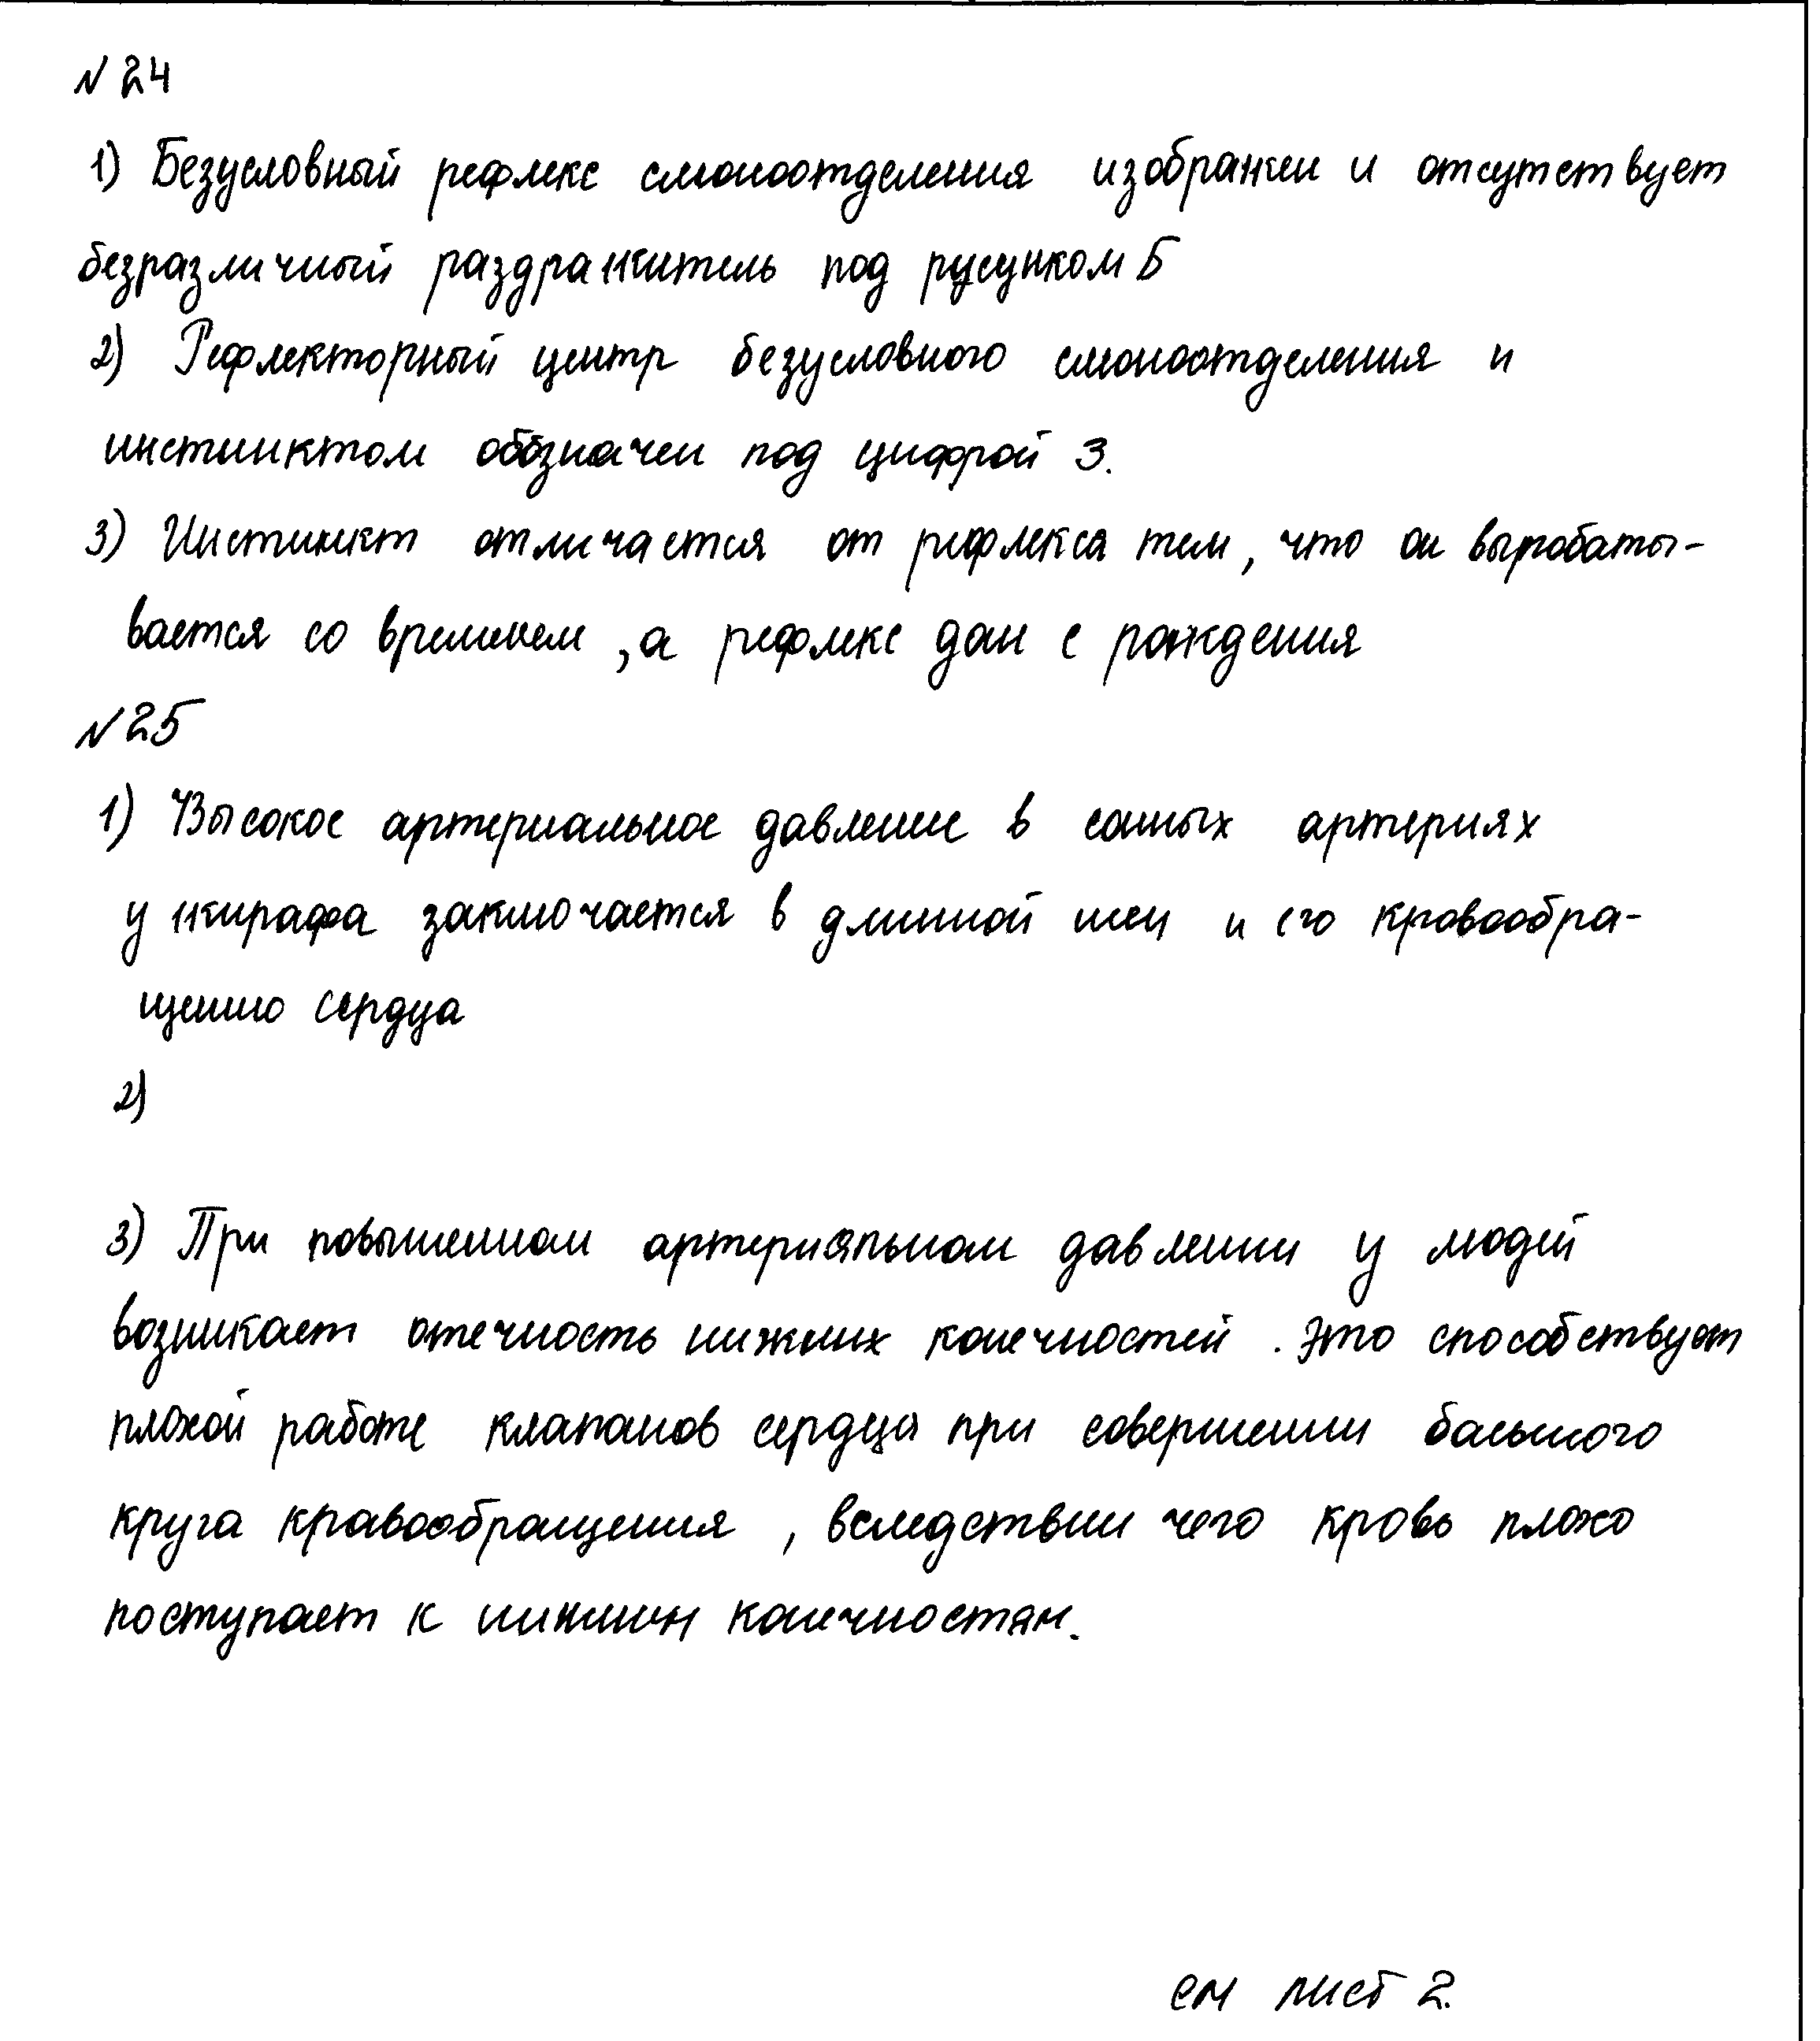 № 24
1) Безусловный рефлекс слюноотделения изображен и отсутствует
безразличный раздражитель под русунком Б
2) Рефлекторный центр безусловного слюноотделения и
инстинктом обозначен под цифрой 3.
3) Инстинкт отличается от рефлекса тем, что он выробаты-
вается со временем, а рефлекс дан с рождения
№ 25
1) Высокое артериальное давление в сонных артериях
у жирафа заключается в длинной шеи и его кровообра-
щению сердца
2)
3) При повышенном артерияльном давлении у людей
возникает отечность нижних конечностей. Это способствует
плохой работе клапанов сердца при совершении большого
круга кравообращения, вследствии чего кровь плохо
поступает к нижним конечностям.
см лист 2.